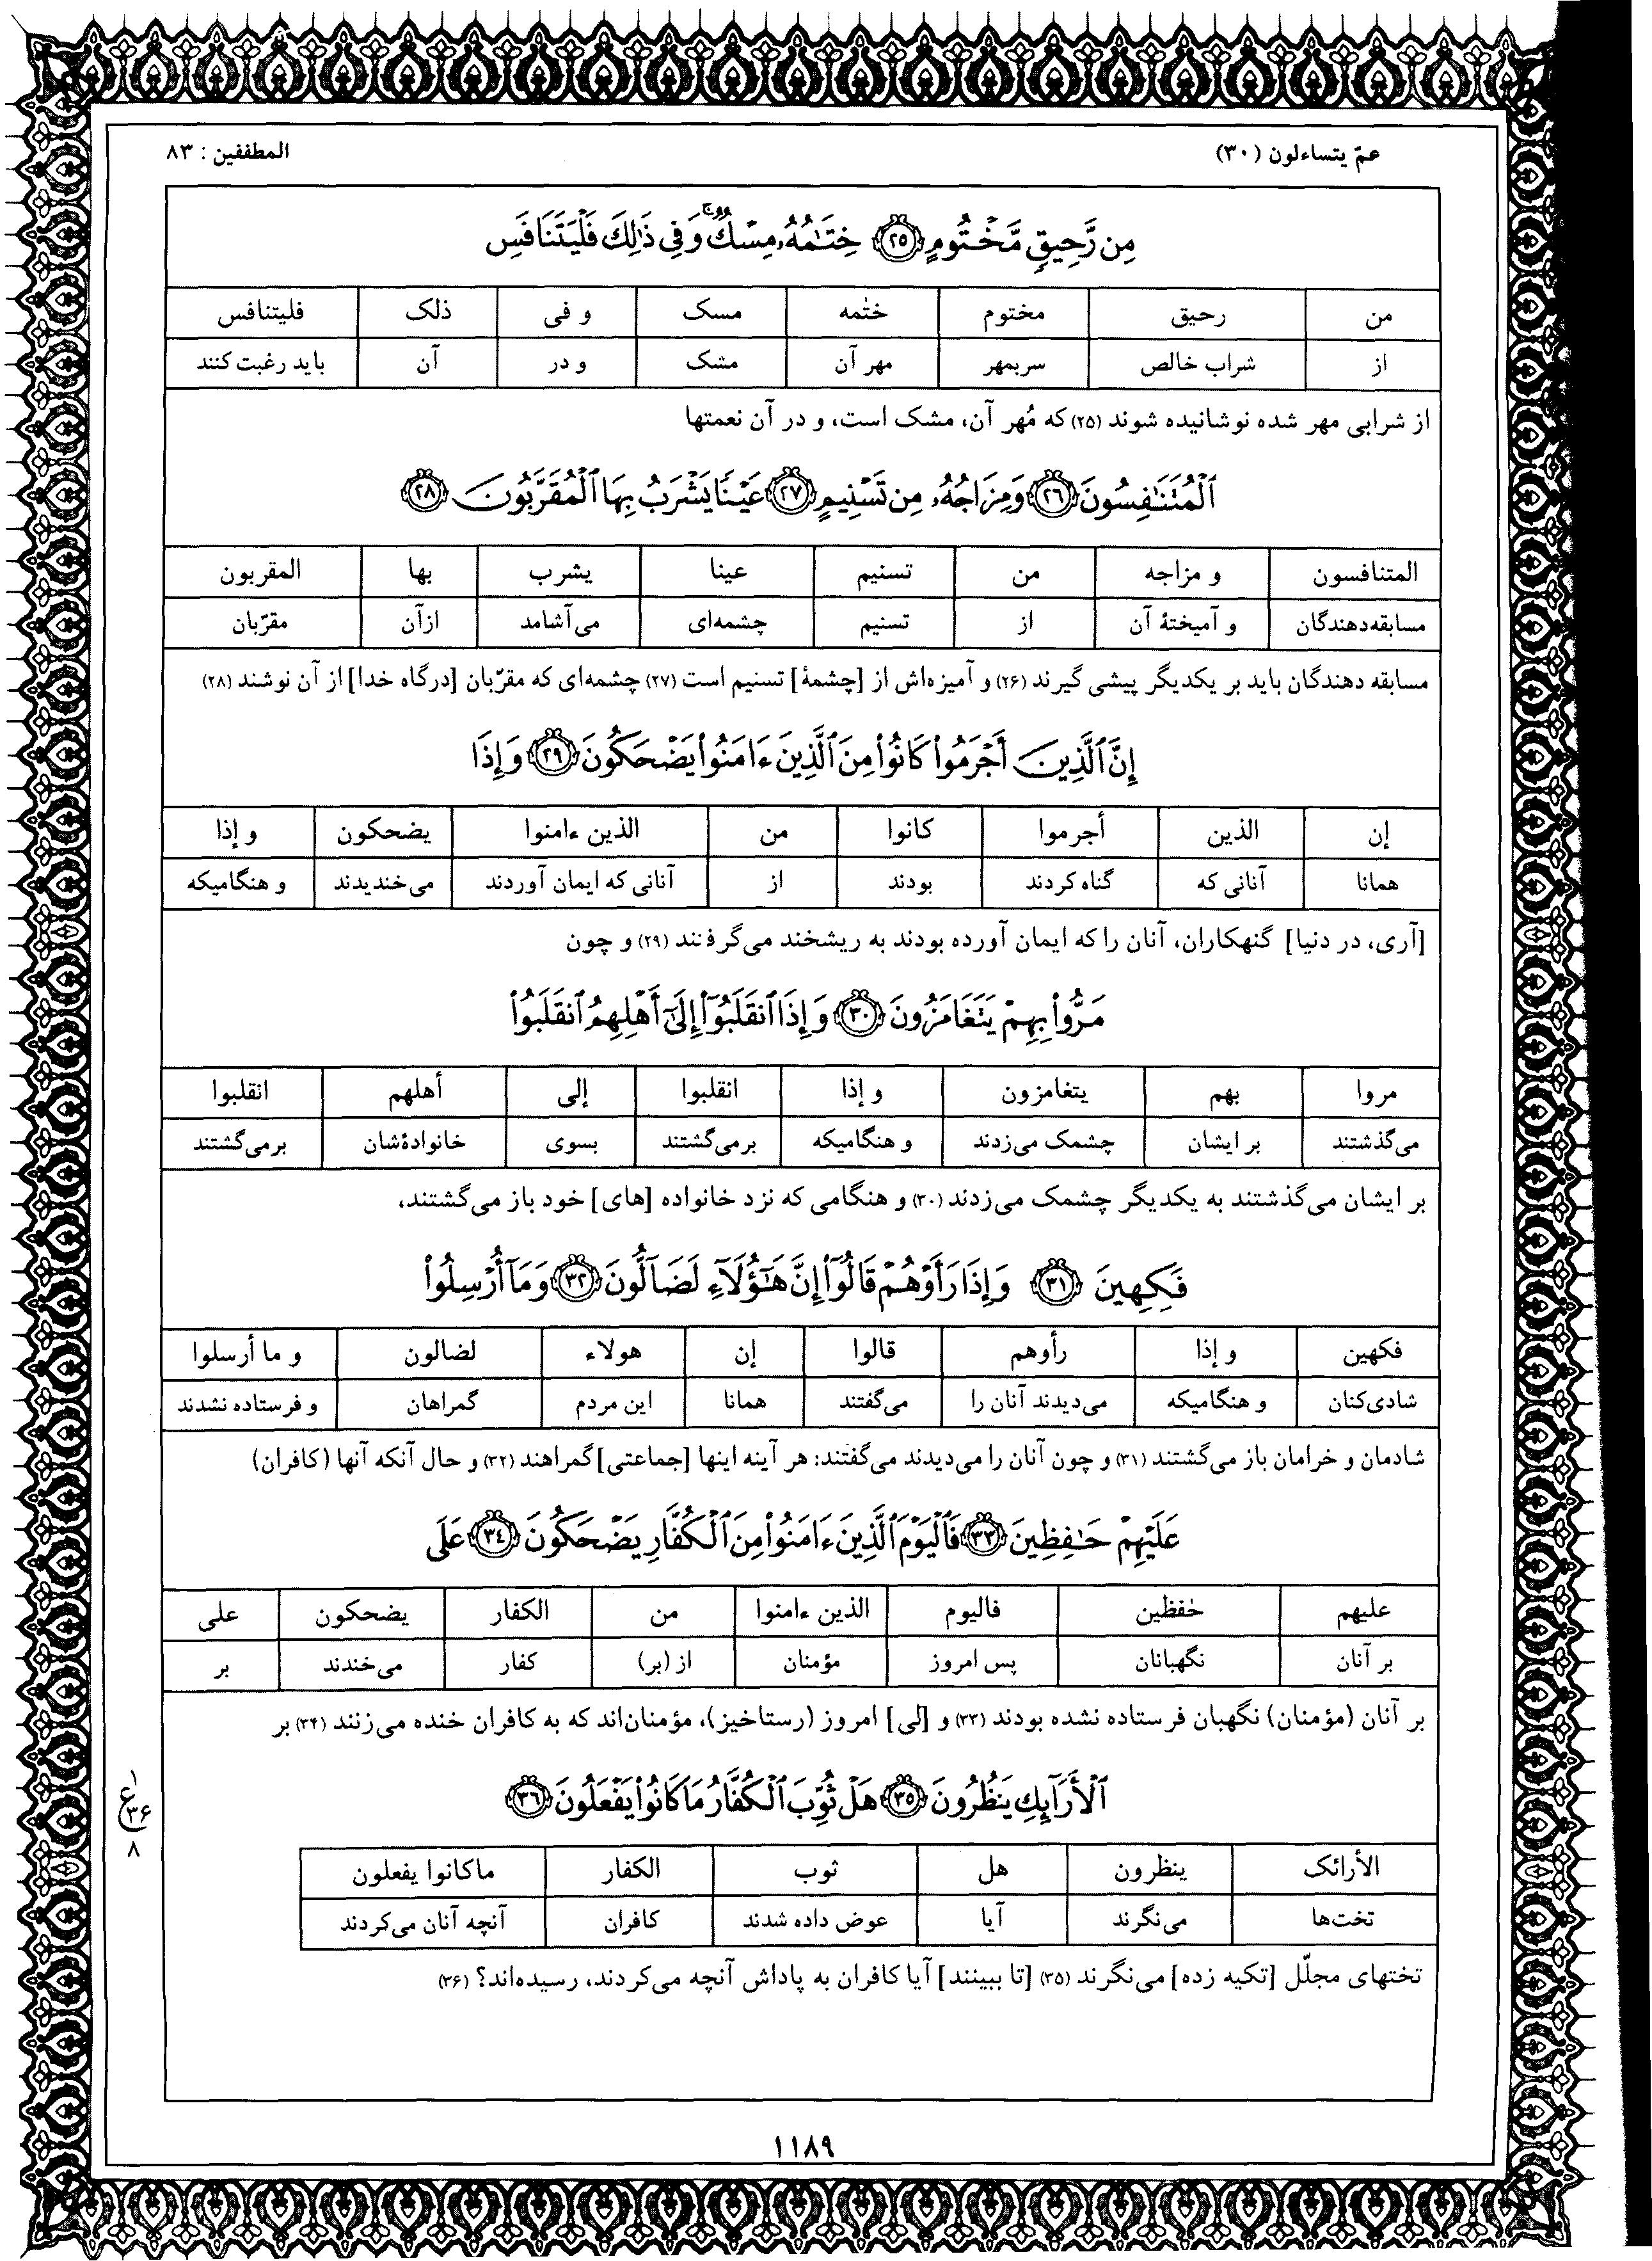 عمّ یتساءلون (۳۰)
المطففین : ۸۳
مِن رَّحِيقٍ مَّخْتُومٍ ٢٥ خِتَٰمُهُۥ مِسْكٌ ۚ وَفِي ذَٰلِكَ فَلْيَتَنَافَسِ
من رحیق مختوم ختٰمه مسک و فی ذلک فلیتنافس
از شراب خالص سربمهر مهر آن مشک و در آن باید رغبت کنند
از شرابی مهر شده نوشانیده شوند (۲۵) که مُهر آن، مشک است، و در آن نعمتها
ٱلْمُتَنَٰفِسُونَ ٢٦ وَمِزَاجُهُۥ مِن تَسْنِيمٍ ٢٧ عَيْنًا يَشْرَبُ بِهَا ٱلْمُقَرَّبُونَ ٢٨
المتنافسون و مزاجه من تسنیم عینا یشرب بها المقربون
مسابقه‌دهندگان و آمیختهٔ آن از تسنیم چشمه‌ای می‌آشامد ازآن مقرّبان
مسابقه دهندگان باید بر یکدیگر پیشی گیرند (۲۶) و آمیزه‌اش از [چشمهٔ] تسنیم است (۲۷) چشمه‌ای که مقرّبان [درگاه خدا] از آن نوشند (۲۸)
إِنَّ ٱلَّذِينَ أَجْرَمُوا۟ كَانُوا۟ مِنَ ٱلَّذِينَ ءَامَنُوا۟ يَضْحَكُونَ ٢٩ وَإِذَا
إن الذین أجرموا کانوا من الذین ءامنوا یضحکون و إذا
همانا آنانی که گناه کردند بودند از آنانی که ایمان آوردند می‌خندیدند و هنگامیکه
[آری، در دنیا] گنهکاران، آنان را که ایمان آورده بودند به ریشخند می‌گرفتند (۲۹) و چون
مَرُّوا۟ بِهِمْ يَتَغَامَزُونَ ٣٠ وَإِذَا ٱنقَلَبُوٓا۟ إِلَىٰٓ أَهْلِهِمُ ٱنقَلَبُوا۟
مروا بهم یتغامزون و إذا انقلبوا إلی أهلهم انقلبوا
می‌گذشتند بر ایشان چشمک می‌زدند و هنگامیکه برمی‌گشتند بسوی خانوادهٔشان برمی‌گشتند
بر ایشان می‌گذشتند به یکدیگر چشمک می‌زدند (۳۰) و هنگامی که نزد خانواده [های] خود باز می‌گشتند،
فَكِهِينَ ٣١ وَإِذَا رَأَوْهُمْ قَالُوٓا۟ إِنَّ هَٰٓؤُلَآءِ لَضَآلُّونَ ٣٢ وَمَآ أُرْسِلُوا۟
فکهین و إذا رأوهم قالوا إن هولاء لضالون و ما أرسلوا
شادی‌کنان و هنگامیکه می‌دیدند آنان را می‌گفتند همانا این مردم گمراهان و فرستاده نشدند
شادمان و خرامان باز می‌گشتند (۳۱) و چون آنان را می‌دیدند می‌گفتند: هر آینه اینها [جماعتی] گمراهند (۳۲) و حال آنکه آنها (کافران)
عَلَيْهِمْ حَٰفِظِينَ ٣٣ فَٱلْيَوْمَ ٱلَّذِينَ ءَامَنُوا۟ مِنَ ٱلْكُفَّارِ يَضْحَكُونَ ٣٤ عَلَى
علیهم حٰفظین فالیوم الذین ءامنوا من الکفار یضحکون علی
بر آنان نگهبانان پس امروز مؤمنان از (بر) کفار می‌خندند بر
بر آنان (مؤمنان) نگهبان فرستاده نشده بودند (۳۳) و [لی] امروز (رستاخیز)، مؤمنان‌اند که به کافران خنده می‌زنند (۳۴) بر
ٱلْأَرَآئِكِ يَنظُرُونَ ٣٥ هَلْ ثُوِّبَ ٱلْكُفَّارُ مَا كَانُوا۟ يَفْعَلُونَ ٣٦
۱
ع
۳۶
۸
الأرائک ینظرون هل ثوب الکفار ماکانوا یفعلون
تخت‌ها می‌نگرند آیا عوض داده شدند کافران آنچه آنان می‌کردند
تختهای مجلّل [تکیه زده] می‌نگرند (۳۵) [تا ببینند] آیا کافران به پاداش آنچه می‌کردند، رسیده‌اند؟ (۳۶)
۱۱۸۹